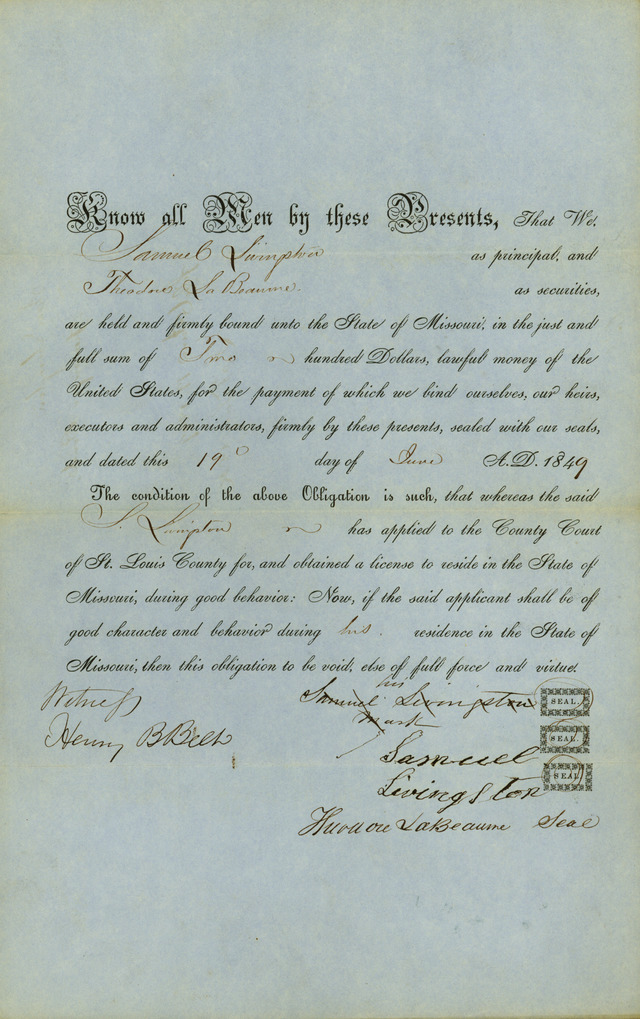 Know all Men by these Presents, That We,
Samuel Livingston as principal, and
Theodore La Beaume as securities,
are held and firmly bound unto the State of Missouri, in the just and
full sum of Two hundred Dollars, lawful money of the
United States, for the payment of which we bind ourselves, our heirs,
executors and administrators, firmly by these presents, sealed with our seals,
and dated this 19 day of June A.D. 1849
The condition of the above Obligation is such, that whereas the said
S. Livingston has applied to the County Court
of St. Louis County for, and obtained a license to reside in the State of
Missouri, during good behavior: Now, if the said applicant shall be of
good character and behavior during his residence in the State of
Missouri, then this obligation to be void, else of full force and virtue.
Witness
Henry B Belt
his
Samuel Livingston SEAL.
mark
SEAL.
Samuel
Livingston SEAL.
Theodore LaBeaume Seal